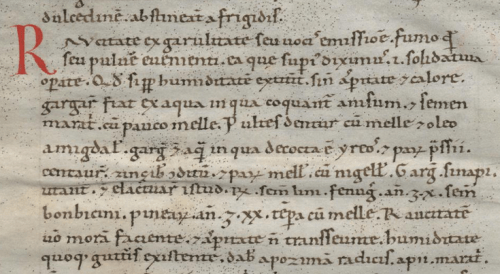 dulcedinē. abstineat a frigidis.
Raucitate ex garulitate seu vocis emissiōe. fumo ꝗ̄
seu pulu̾e euenienti. ea que sup̾ dixim᷒. ⁊. solidatiua
op̄ate. Qd̄ si humiditatē sin̄ ap̾itate ⁊ calore.
gargar̾ fiat ex aqua in qua coquant̾ anisum. ⁊ semen
marat̾. cū pauco melle. P ultes dentur cū melle ⁊ oleo
amigdal̾. garg̾ ⁊ aq̄ in qua decocta ē yreos. ⁊ pax
centaur̾. zinzib̾ ⁊ pax mell̾. cū nigell̾. Garg̾. sinapi.
utant̾. ⁊ elactuar̾ istud. ꝶ. sem̄ lini. fenug̾. an̄. ʒ. x. sem̄
bonbicini. pineax. an̄. ʒ. xx. tēpa cū melle. Raucitate
u̾o morā faciente. ⁊ ap̾itate n̄ transseunte. humiditate
quoq; gutturis existente. dab̾ apozima radicis. apii. marat̾.